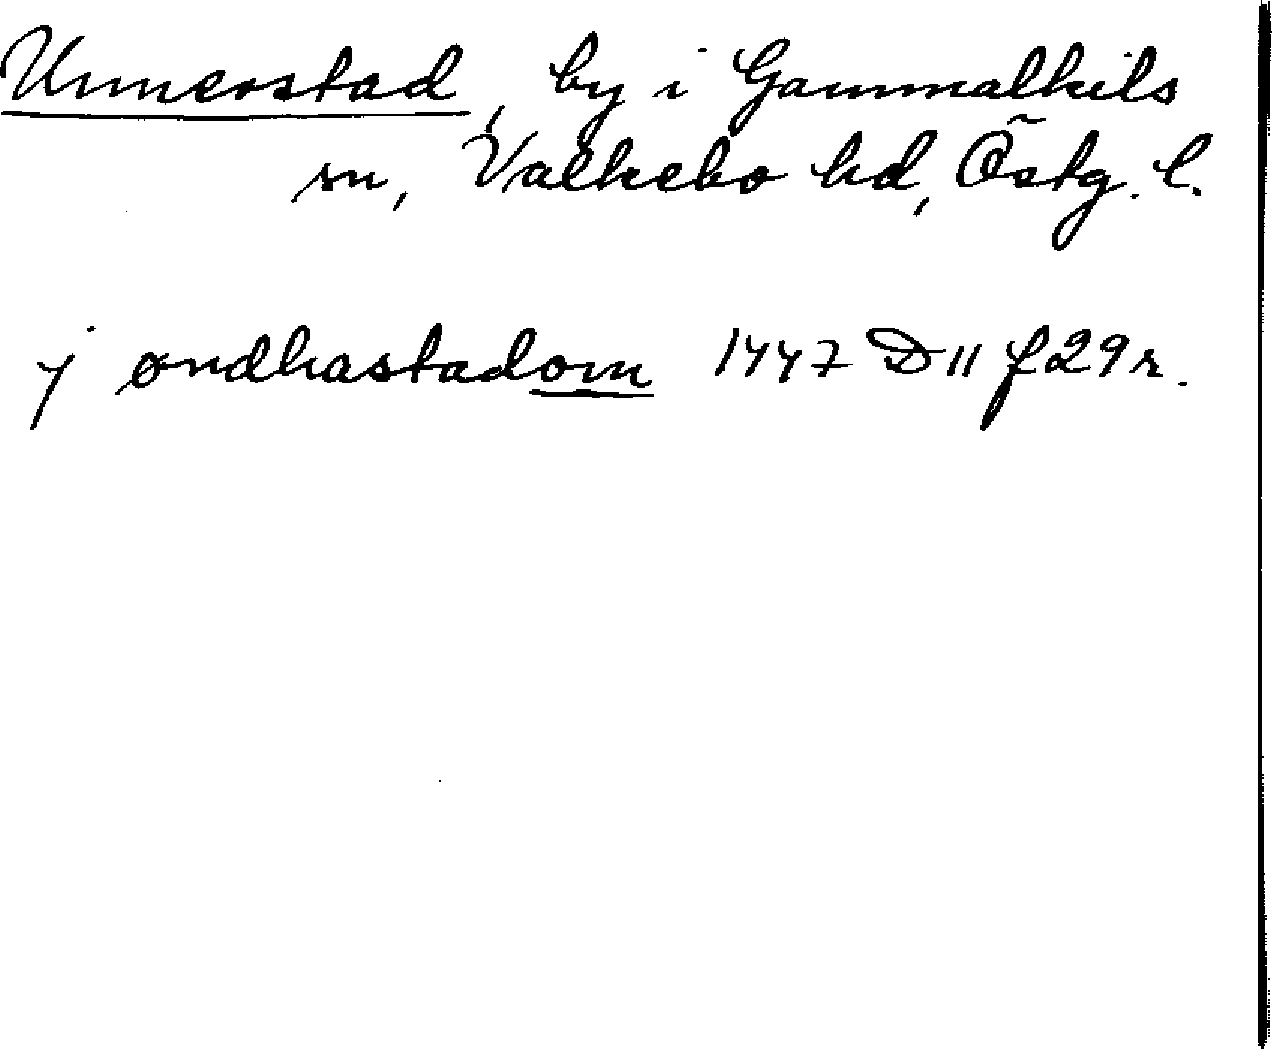 Unnerstad, by i Gammalkils
sn, Valkebo hd, Östg. l.
j øndhastadom 1447 D 11 f 29 r.